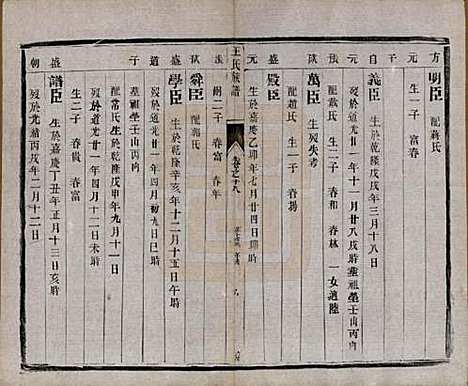 方明臣 配蔣氏
元 生一子 富春
子
自義臣 生於乾隆戊戌年三月十八
歿於道光廿一年十二月廿八戌時葬祖塋壬山丙向
配戴氏 生二子 春和 春林 一女適陸
干萬臣 生歿失考
配趙氏 生一子 春揚
元殿臣 生於嘉慶乙卯年七月廿四日 時
王氏族譜
卷之十八
九
嗣二子 春富 春年
弑舜臣 配蔣氏
盛學臣 生於乾隆辛亥年十二月十五日午時
道 歿於道光廿一年四月初九日巳時
葬祖塋壬山丙向
子 配常氏 生於乾隆戊申年九月十一日
歿於道光廿一年四月十一日未時
生二子 春富 春貴
盛譜臣 生於嘉慶丁丑年正月十三日亥時
朝 歿於光緒丙戌年二月十二日